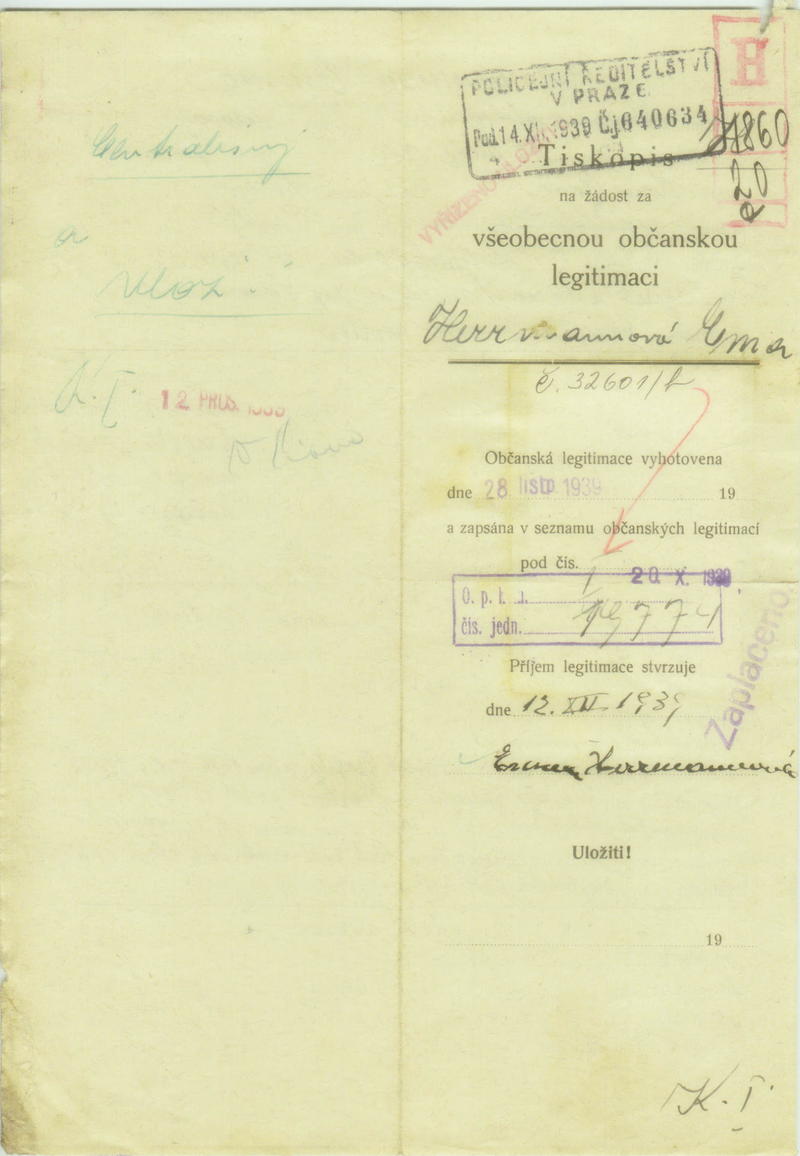 a
vlož
K. I.
12 PROS. 1939
H
POLICEJNÍ ŘEDITELSTVÍ
V PRAZE
Pod. 14.XI.1939 Čj 640634
1860
20
Tiskopis
na žádost za
všeobecnou občanskou
legitimaci
Herrmannová Ema
č. 32601/h
Občanská legitimace vyhotovena
dne 28 listp 1939 19
a zapsána v seznamu občanských legitimací
pod čís.
20. X. 1939
O. p. l. I.
čís. jedn. 19774
Zaplaceno
Příjem legitimace stvrzuje
dne 12. XII. 1939
Emma Herrmannová
Uložiti!
19
K. I.